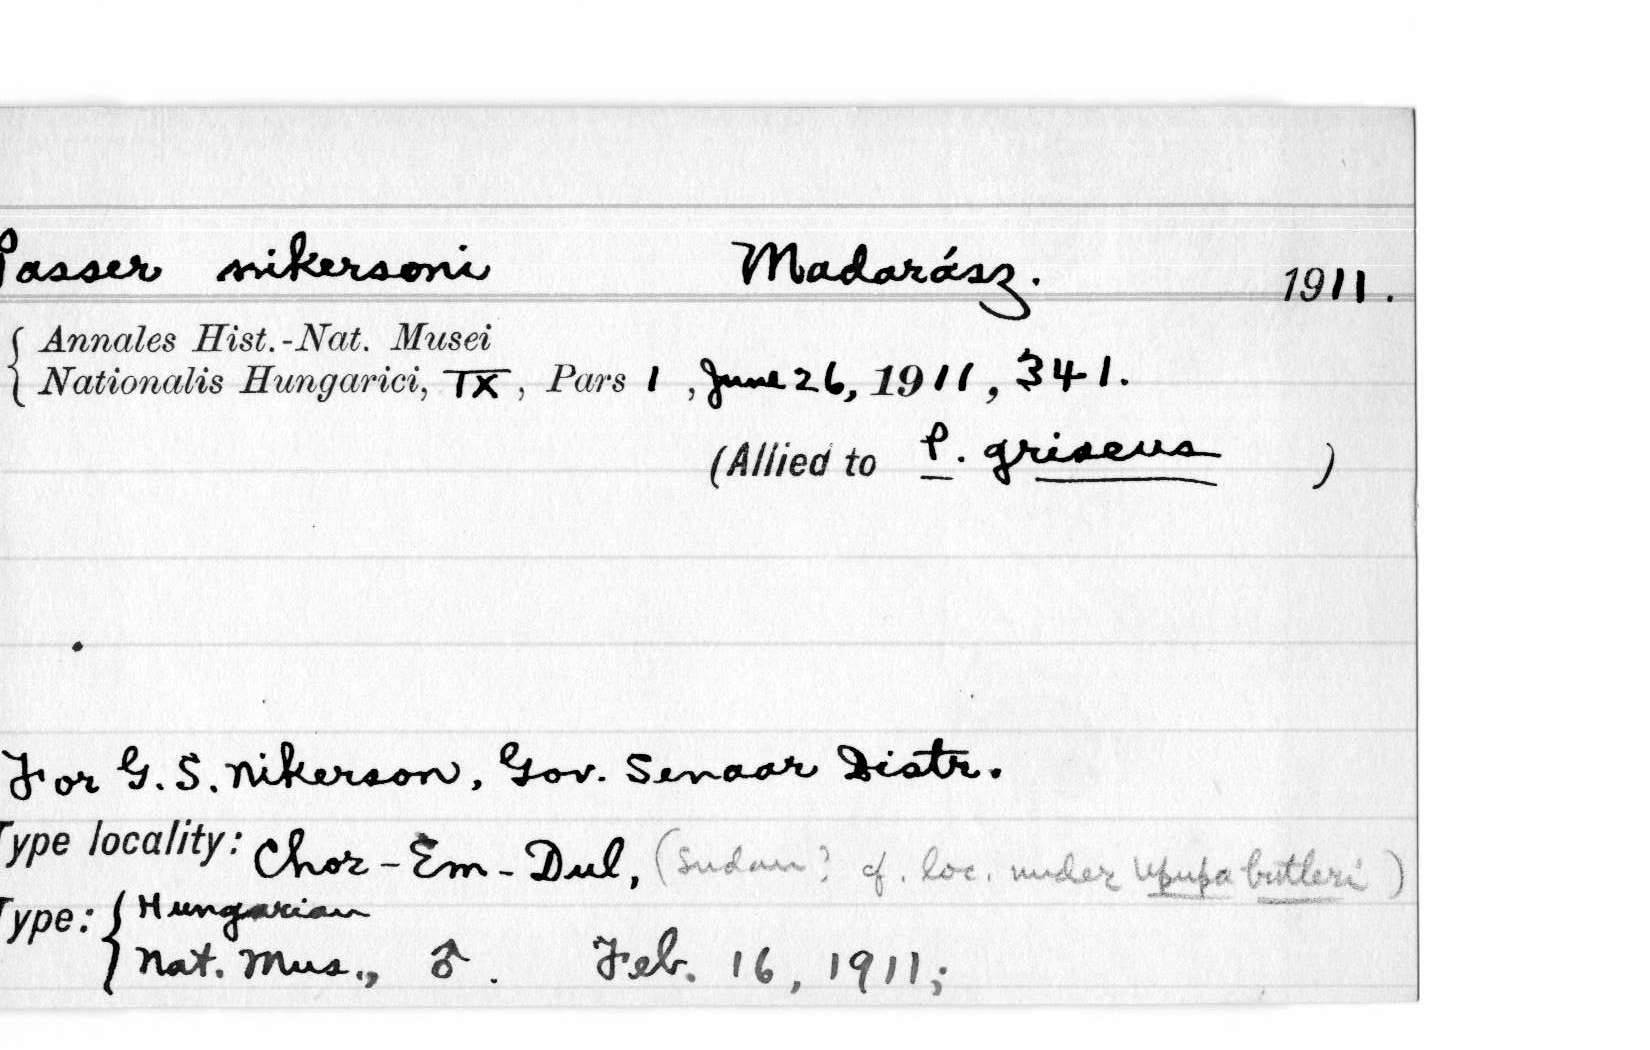 Passer nikersoni Madarász. 1911.
{ Annales Hist.-Nat. Musei
Nationalis Hungarici, IX, Pars 1, June 26, 1911, 341.
(Allied to P. griseus )
For G. S. Nikerson, Gov. Senaar Distr.
Type locality: Chor-Em-Dul, (Sudan? cf. loc. under Upupa butleri)
Type: { Hungarian
Nat. Mus., ♂. Feb. 16, 1911;